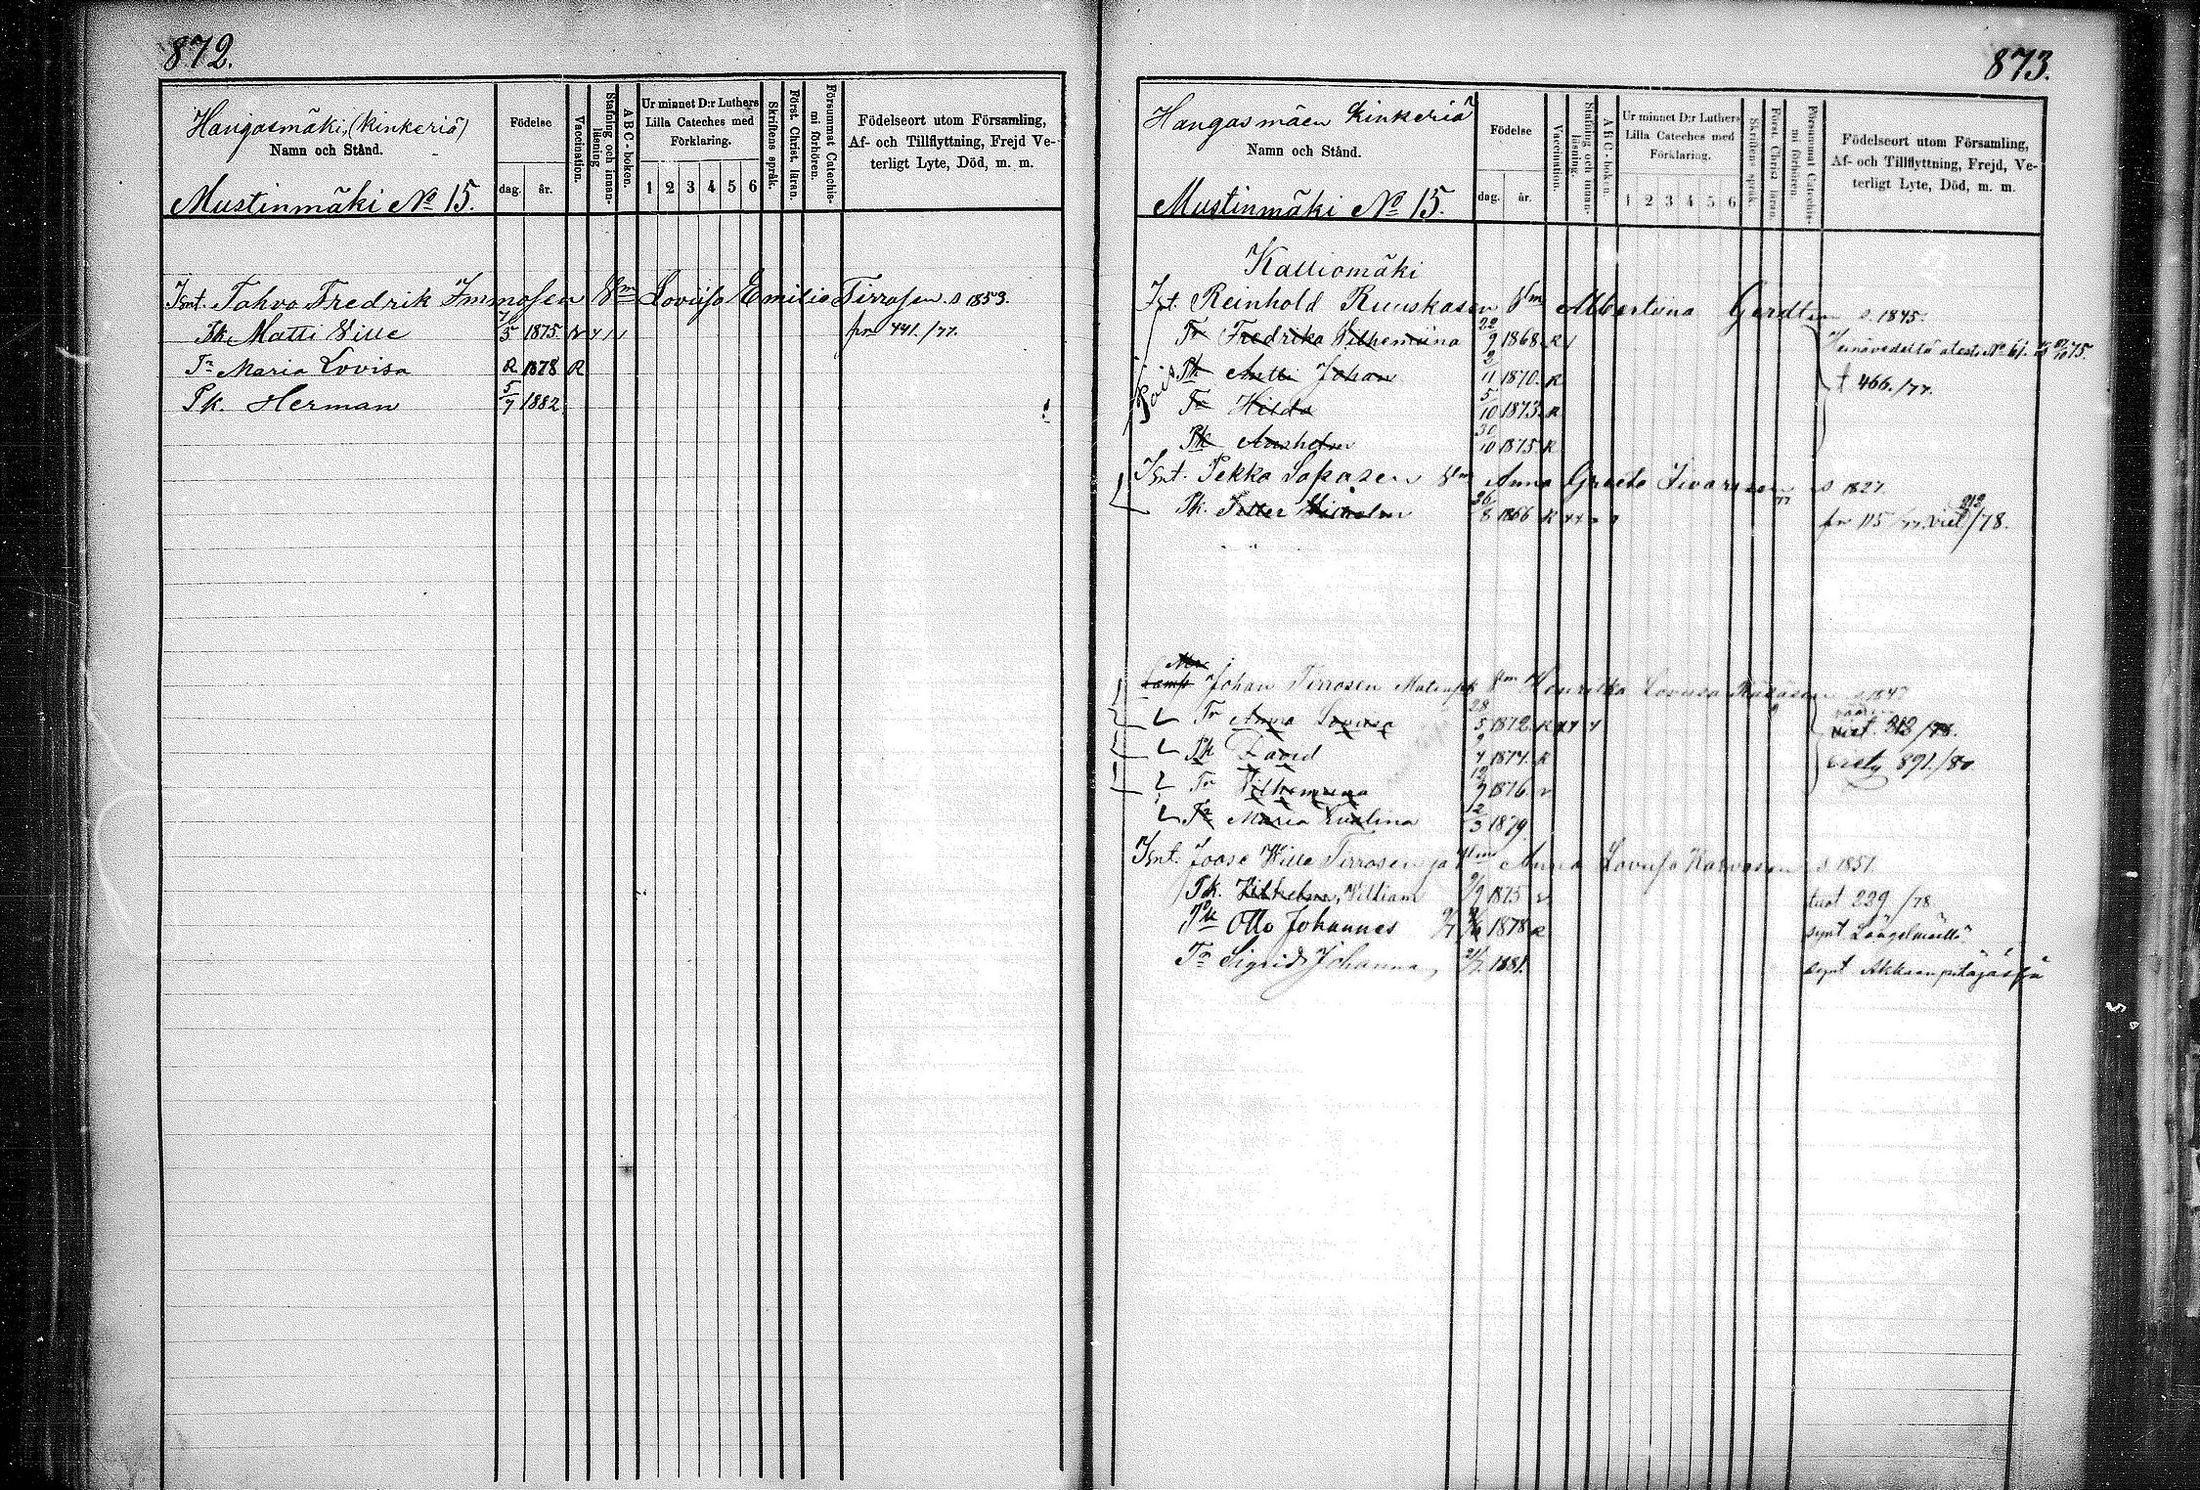 872.
Hangasmäki, (kinkeriä)
Namn och Stånd.
Mustinmäki No 15.
Födelse
dag. år.
Vaccination.
Stafning och innan-läsning
ABC-boken.
Ur minnet D:r Luthers Lilla Cateches med Förklaring.
1 2 3 4 5 6
Skriftens språk.
Först. Christ. läran.
Försummat Catechismi förhören.
Födelseort utom Församling, Af- och Tillflyttning, Frejd Veterligt Lyte, Död, m. m.
Tahvo Fredrik Immosen Vm Lovisa Emilia Tirrosen s 1853.
Pk. Matti Ville 5 1875 pr 441./77.
Tr Maria Lovisa R 1878 R
Pk. Herman 5/7 1882
873.
Hangasmäen kinkeriä
Namn och Stånd.
Mustinmäki No 15.
Födelse
dag. år.
Vaccination.
Stafning och innan-läsning.
ABC-boken.
Ur minnet D:r Luthers Lilla Cateches med Förklaring.
1 2 3 4 5 6
Skriftens språk
Först. Christ läran.
Försummat Catechismi förhören
Födelseort utom Församling, Af- och Tillflyttning, Frejd, Veterligt Lyte, Död, m. m.
Kalliomäki
Reinhold Ruuskasen Vm Albertiina s 1845.
Tr Fredrika Vilhemiina 22/9 1868 R
Pk Antti Johan 2/11 1870. R
† 466./77.
Tr Hilda 5/10 1873. R
Pk 30/10 1875 R
Pois
Pekka Vm Anna Greeta s 1827.
Pk. 26/8 1866 R
Johan Tirrosen Vm Lovisa s 1847
Tr Anna Lovisa 28/5 1872. R 213/78.
Pk David 4 1874. R 891./80
Tr Vilhemiina 1876.
Tr Maria 12/3 1879
Joose Wille Tirrosen ja Vm Anna Lovisa s 1851.
Pk. Vilhelm, William 1875 tuot 229 /78
Pk Otto Johannes 1878 R synt
Tr Sigrid Johanna, 1881. synt Akkaan pitäjässä